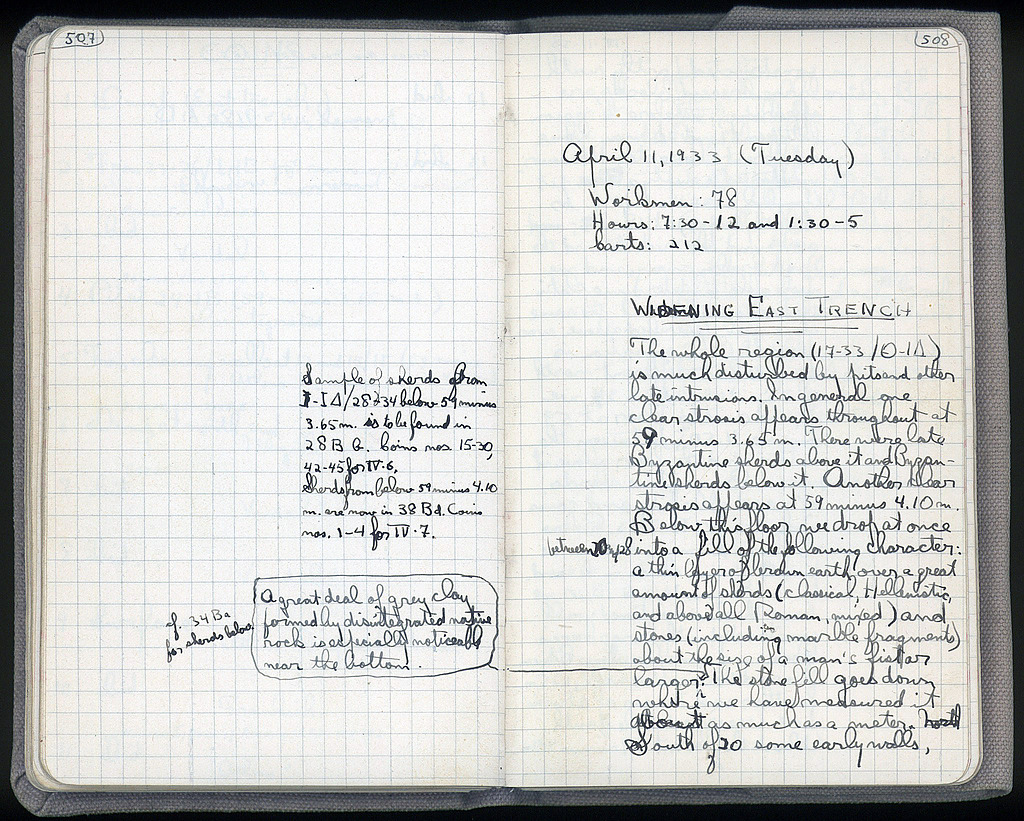 507
Sample of sherds from
I-IΔ/28-34 below 59 minus
3.65 m. is to be found in
28 B G. Coins nos. 15-30,
42-45 for IV·6.
Sherds from below 59 minus 4.10
m. are now in 38 Bd. Coins
nos. 1-4 for IV·7.
cf. 34 Ba
for sherds below
A great deal of grey clay
formed by disintegrated native
rock is especially noticeable
near the bottom.
508
April 11, 1933 (Tuesday)
Workmen: 78
Hours: 7:30-12 and 1:30-5
Carts: 212
WIDENING EAST TRENCH
The whole region (17-33/Θ-ΙΔ)
is much disturbed by pits and other
late intrusions. In general one
clear strosis appears throughout at
59 minus 3.65 m. There were late
Byzantine sherds above it and Byzan-
tine sherds below it. Another clear
strosis appears at 59 minus 4.10 m.
Below this floor we drop at once
between 28 into a fill of the following character:
a thin layer of brown earth over a great
amount of sherds (classical, Hellenistic,
and above all Roman, mixed) and
stones (including marble fragments)
about the size of a man's fist or
larger. The stone fill goes down
where we have measured it
as much as a meter.
South of 20 some early walls,